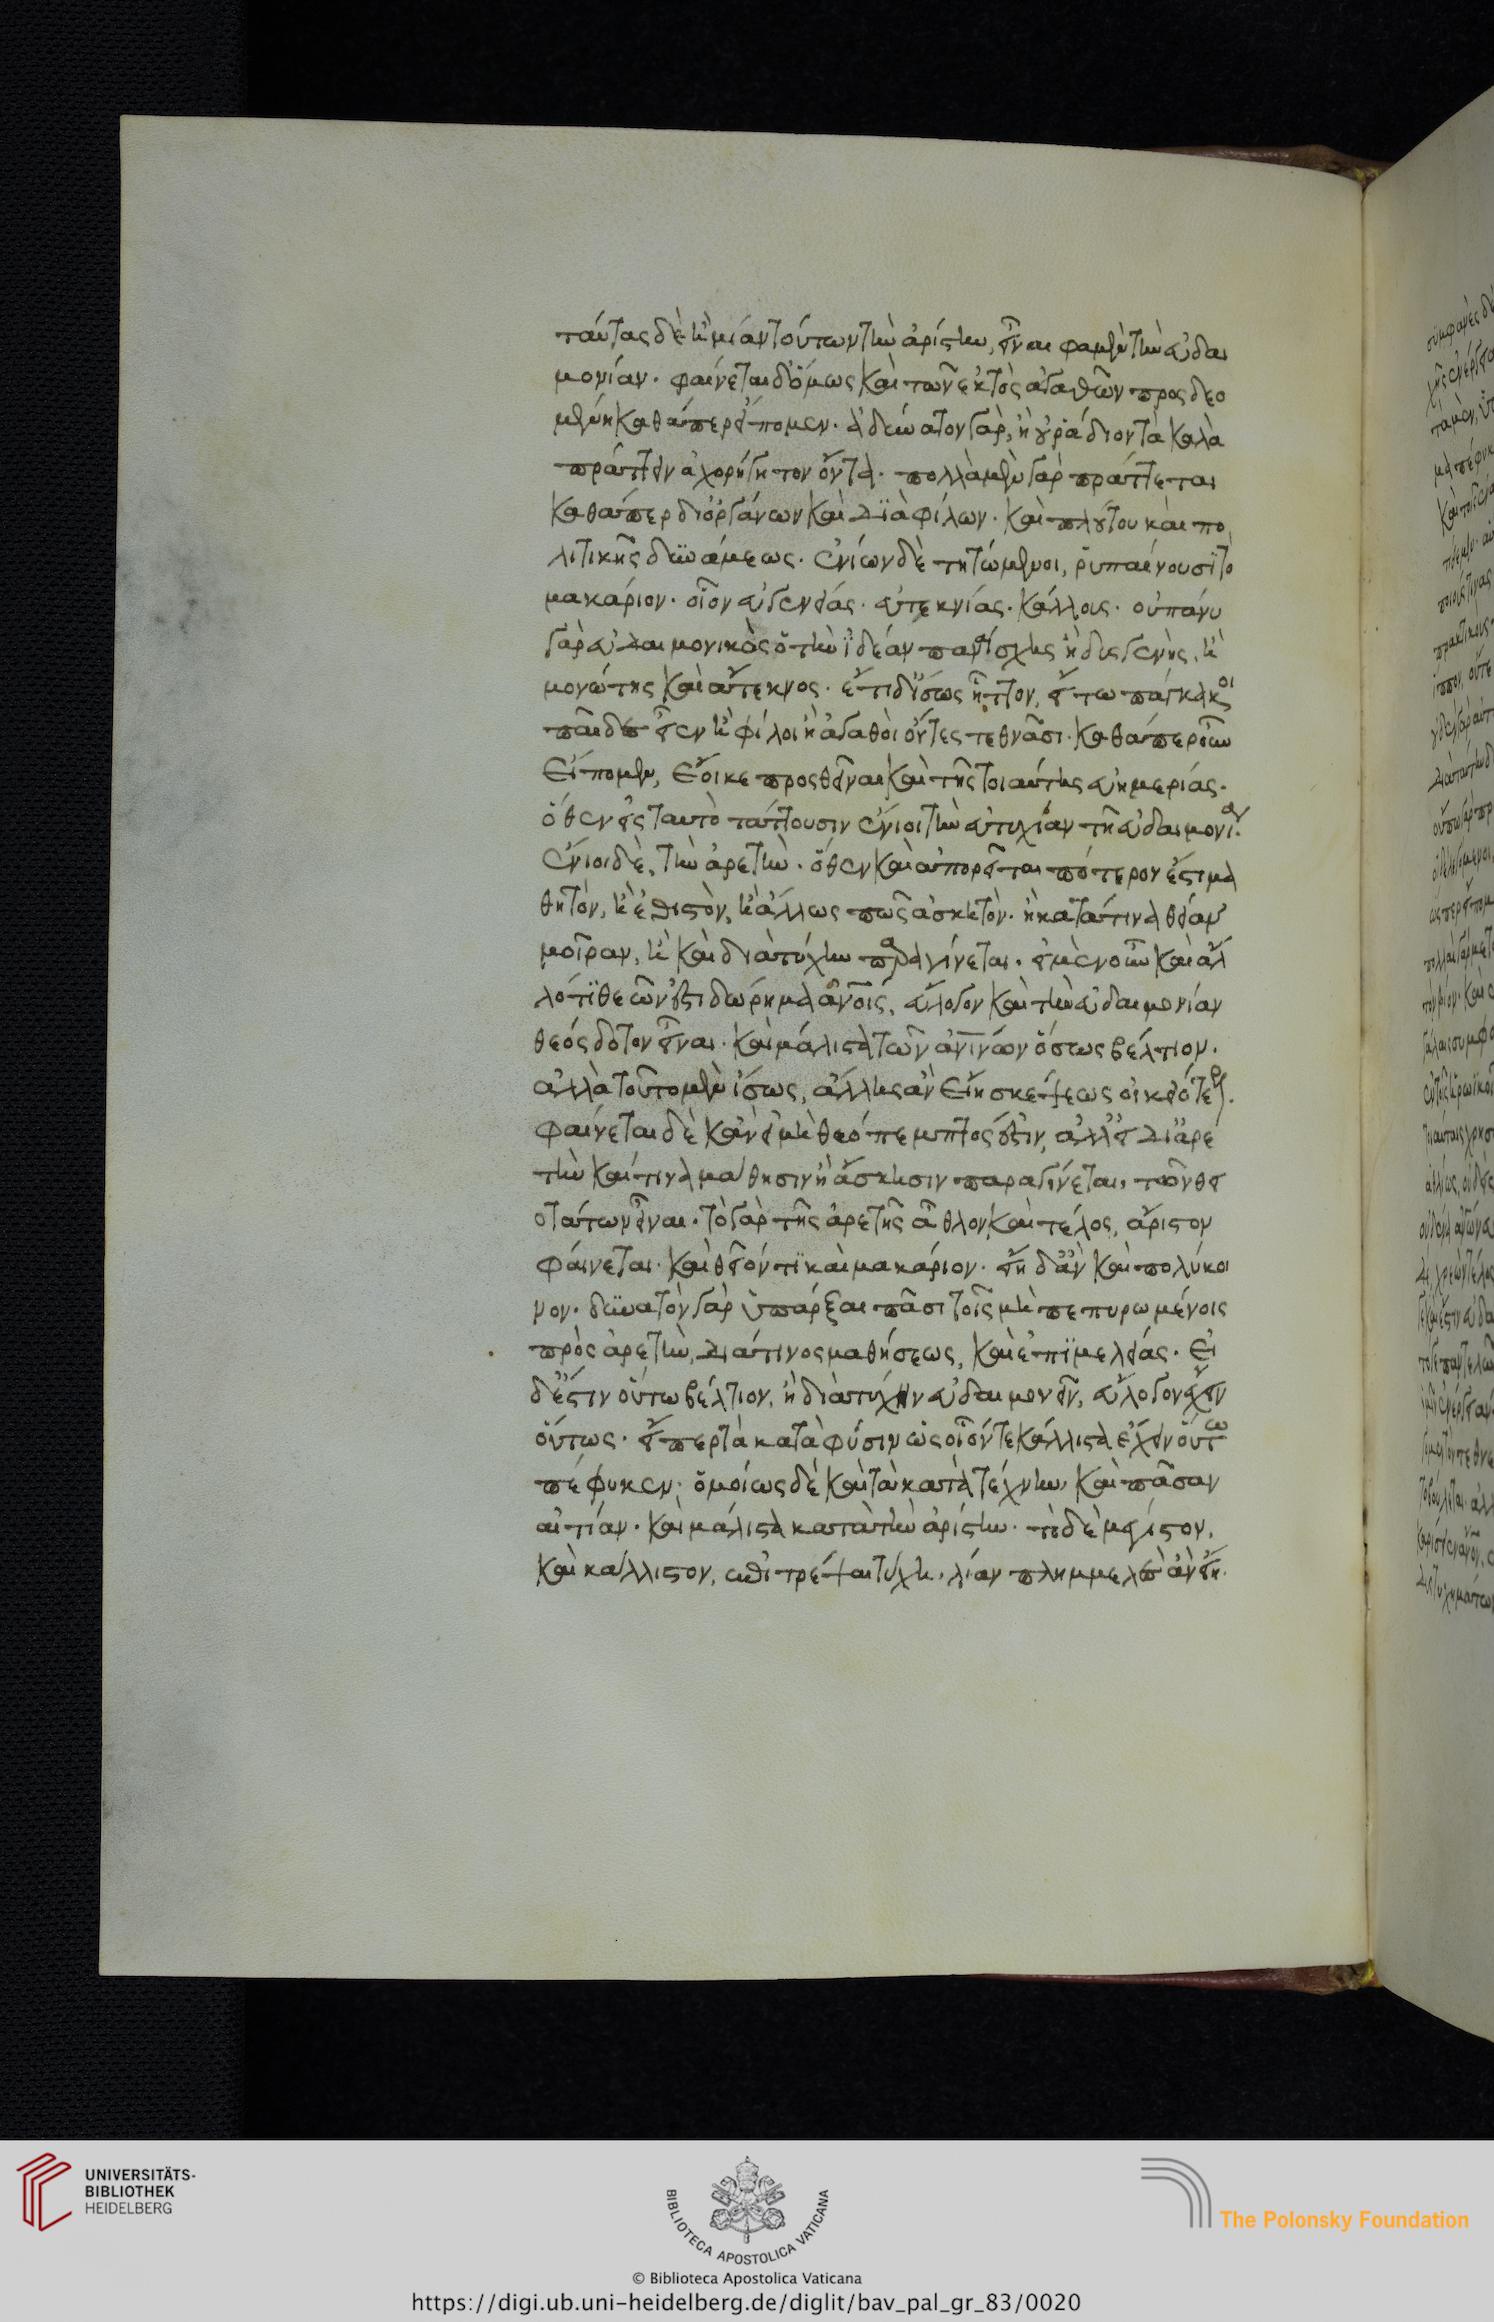 ταύτας δὲ ἢ μίαν τούτων τὴν ἀρίστην, εἶναι φαμὲν τὴν εὐδαι
μονίαν. φαίνεται δ' ὅμως καὶ τῶν ἐκτὸς ἀγαθῶν προσδεο
μένη καθάπερ εἴπομεν. ἀδύνατον γὰρ, ἢ οὐ ῥάδιον τὰ καλὰ
πράττειν ἀχορήγητον ὄντα. πολλὰ μὲν γὰρ πράττεται
καθάπερ δι' ὀργάνων καὶ διὰ φίλων. καὶ πλούτου καὶ πο
λιτικῆς δυνάμεως. ἐνίων δὲ τητώμενοι, ῥυπαίνουσι τὸ
μακάριον. οἷον εὐγενείας. εὐτεκνίας. κάλλους. οὐ πάνυ
γὰρ εὐδαιμονικὸς ὁ τὴν ἰδέαν παναίσχης ἢ δυσγενὴς, ἢ
μονώτης καὶ ἄτεκνος. ἔτι δ' ἴσως ἧττον, εἴ τω πάγκακοι
παῖδες εἶεν ἢ φίλοι ἢ ἀγαθοὶ ὄντες τεθνᾶσι. καθάπερ οὖν
εἴπομεν, ἔοικε προσθεῖναι καὶ τῆς τοιαύτης εὐημερίας.
ὅθεν εἰς ταυτὸ τάττουσιν ἔνιοι τὴν εὐτυχίαν τῇ εὐδαιμονίᾳ.
ἔνιοι δὲ, τὴν ἀρετὴν. ὅθεν καὶ ἀπορεῖται πότερον ἐστι μα
θητὸν, ἢ ἐθιστὸν, ἢ ἄλλως πως ἀσκητὸν. ἢ κατά τινα θείαν
μοῖραν, ἢ καὶ διὰ τύχην παραγίνεται. εἰ μὲν οὖν καὶ ἄλ
λο τι θεῶν ἐστι δώρημα ἀνοις, εὔλογον καὶ τὴν εὐδαιμονίαν
θεόσδοτον εἶναι. καὶ μάλιστα τῶν ἀνίνων ὅσω βέλτιον.
ἀλλὰ τοῦτο μὲν ἴσως, ἄλλης ἂν εἴη σκέψεως οἰκειότερ.
φαίνεται δὲ κἂν εἰ μὴ θεόπεμπτος ἐστιν, ἀλλ' εἰ δι' ἀρε
τὴν καί τινα μάθησιν ἢ ἄσκησιν παραγίνεται, τῶν θει
οτάτων εἶναι. τὸ γὰρ τῆς ἀρετῆς ἆθλον καὶ τέλος, ἄριστον
φαίνεται. καὶ θεῖόν τι καὶ μακάριον. εἴη δ' ἂν καὶ πολύκοι
νον. δυνατὸν γὰρ ὑπάρξαι πᾶσι τοῖς μὴ πεπυρωμένοις
πρὸς ἀρετὴν, διά τινος μαθήσεως, καὶ ἐπιμελείας. εἰ
δ' ἐστιν οὕτω βέλτιον, ἢ διὰ τύχην εὐδαιμονεῖν, εὔλογον ἔχειν
οὕτως. εἴπερ τὰ κατὰ φύσιν ὡς οἷόν τε κάλλιστα ἔχειν οὕτω
πέφυκεν. ὁμοίως δὲ καὶ τὰ κατὰ τέχνην, καὶ πᾶσαν
αἰτίαν. καὶ μάλιστα κατὰ τὴν ἀρίστην. τὸ δὲ μέγιστον,
καὶ κάλλιστον, ἐπιτρέψαι τύχῃ, λίαν πλημμελὲς ἂν εἴη.
UNIVERSITÄTS-
BIBLIOTHEK
HEIDELBERG
BIBLIOTECA APOSTOLICA VATICANA
© Biblioteca Apostolica Vaticana
The Polonsky Foundation
https://digi.ub.uni-heidelberg.de/diglit/bav_pal_gr_83/0020